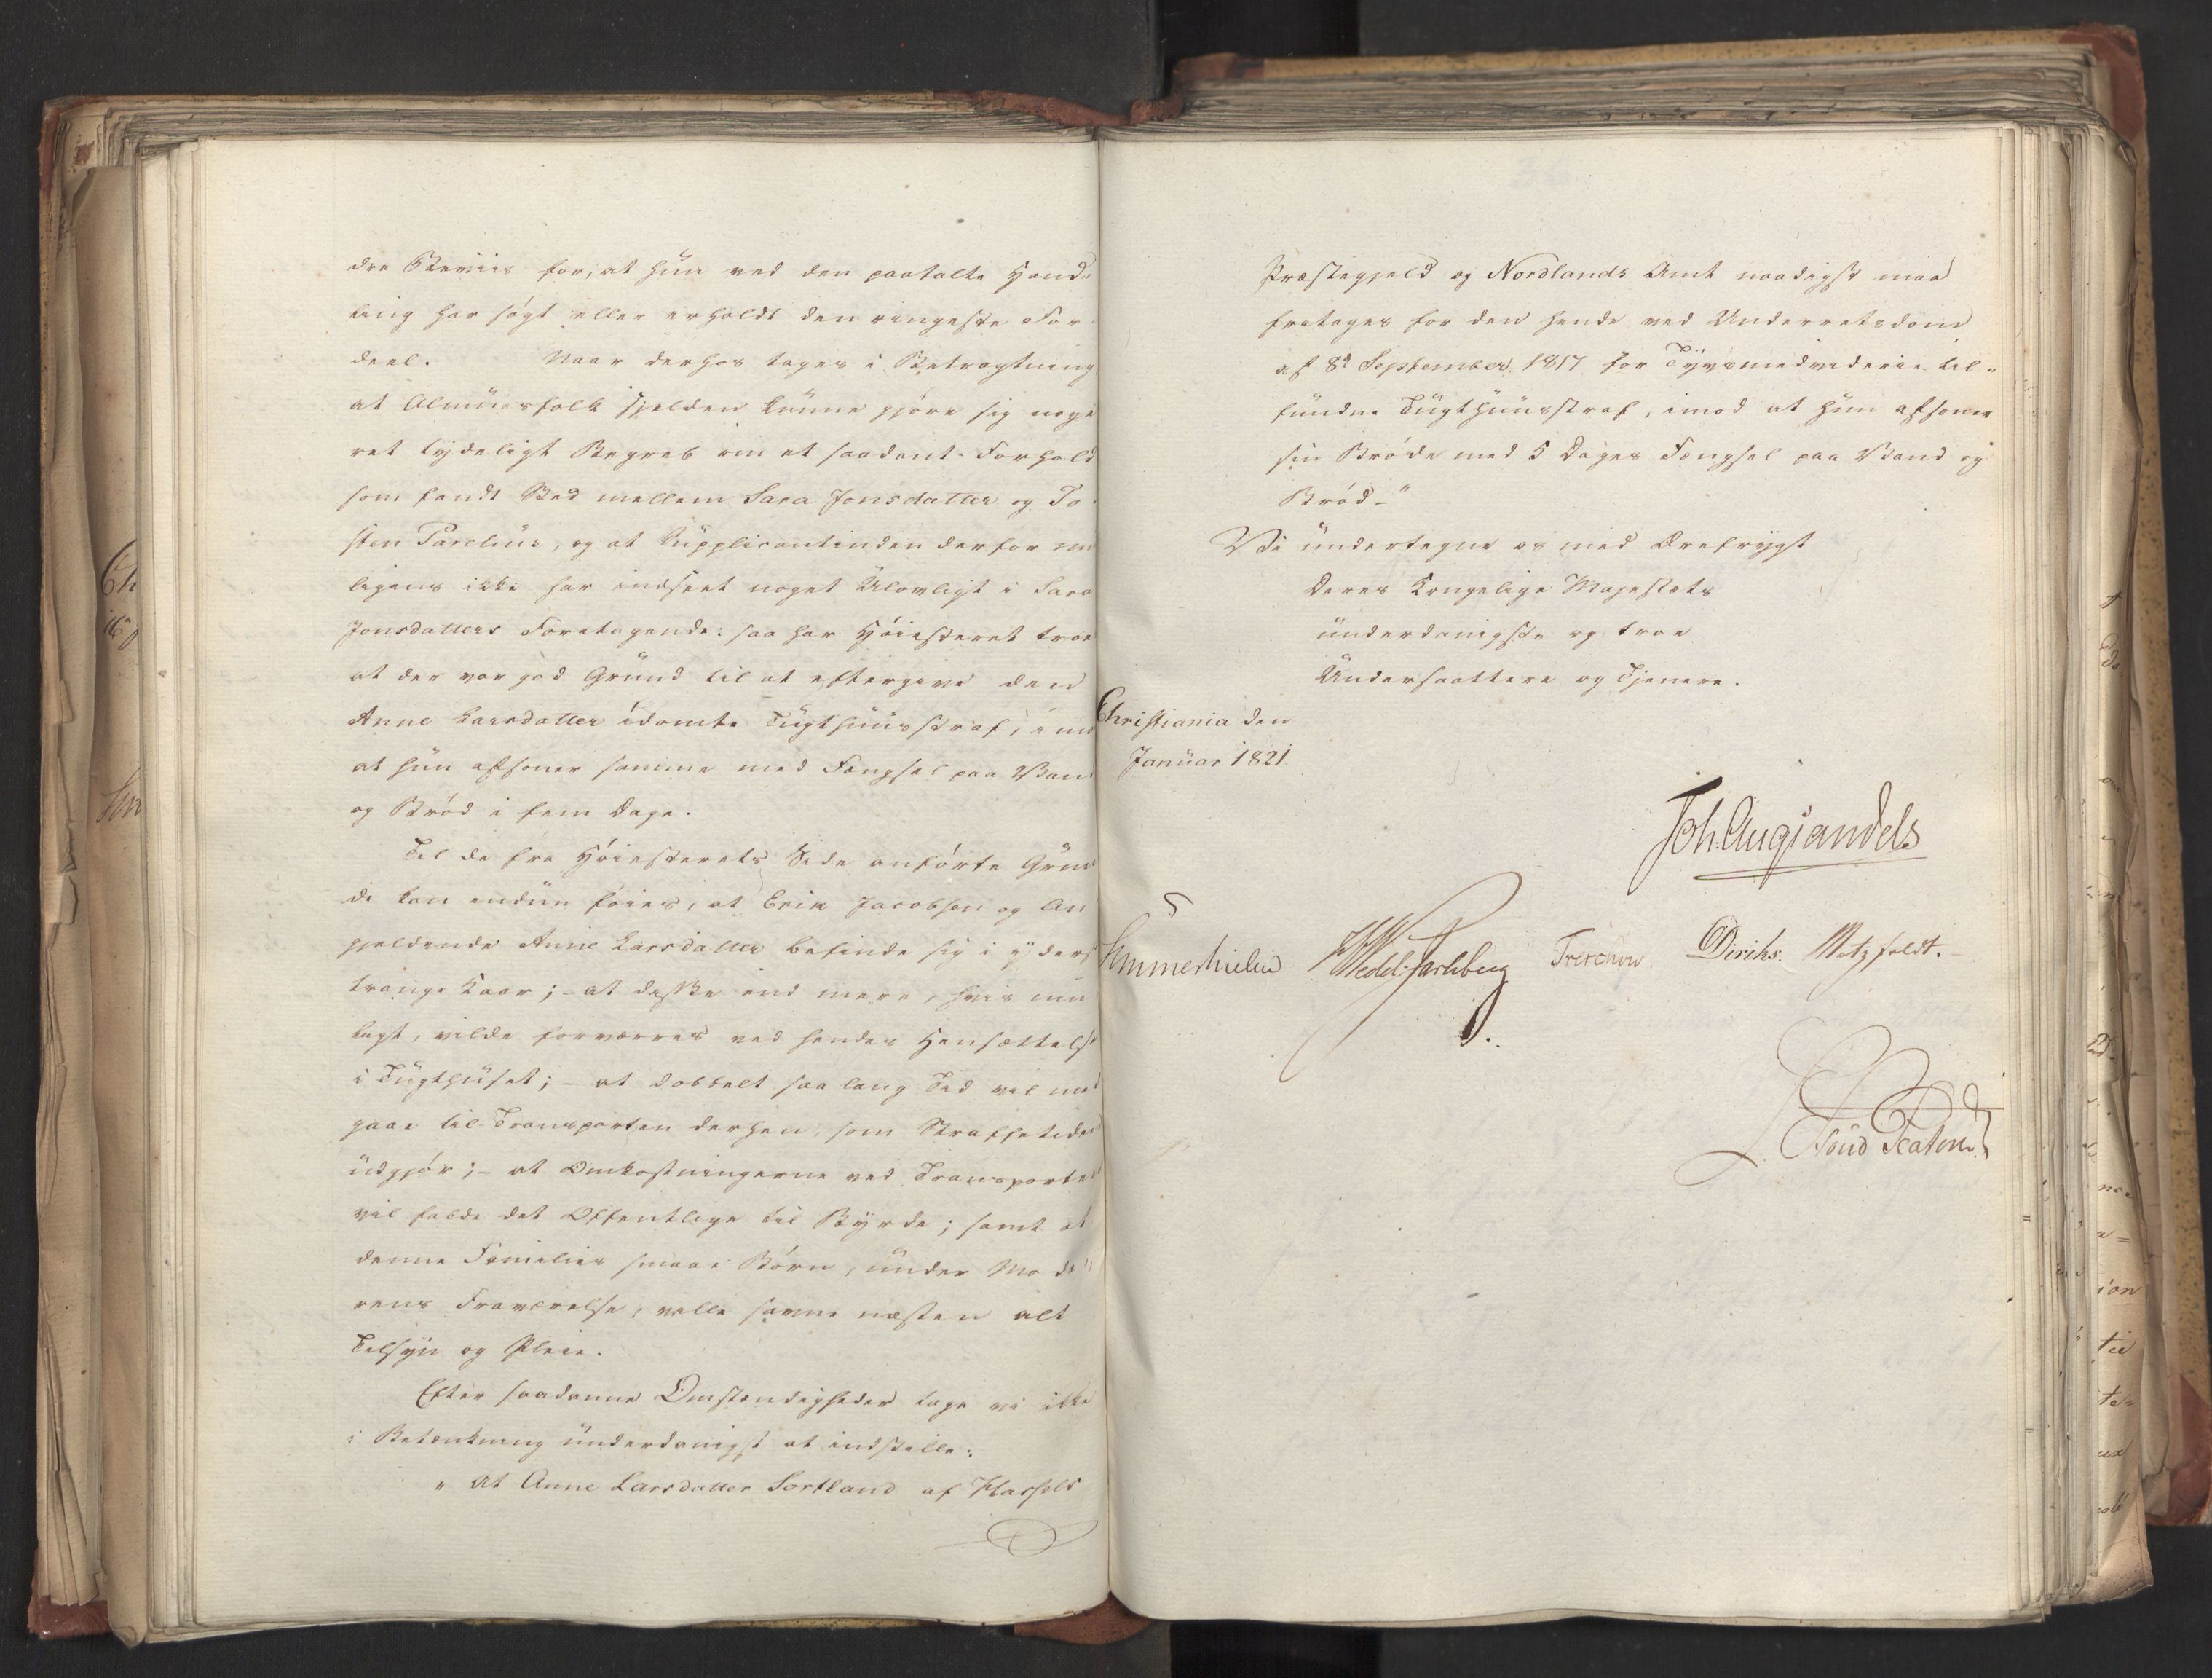 dre Beviis for, at hün ved den paatalte Hand-
ling har søgt eller erholdt den ringeste For-
deel. Naar derhos tages i Betragtning
at Almüesfolk sjelden kunne gjøre sig noge
ret tydeligt Begreb om et saadant Forhold
som fandt Sted mellem Sara Jonsdatter og To-
sten Parelius, og at Supplicantinden derfor
ligens ikke har indseet noget Ulovligt i Sara
Jonsdatters Foretagende: saa har Høiesteret troe
at der var god Grund til at eftergive den
Anne Larsdatter idømte Tügthüüsstraf, imod
at hün afsoner samme med Fængsel paa Vand
og Brød i fem Dage.
Til de fra Høiesterets Side anførte Grün
de kan endnu føies, at Erik Jacobsen og An
gjeldende Anne Larsdatter befinde sig i yderst
trange Kaar; - at disse end mere, hvis mu
ligt, vilde forværres ved hendes Hensættelse
i Tügthüset; - at dobbelt saa lang Tid vil med
gaae til Transporten derhen, som Straffetiden
üdgjør; - at Omkostningerne ved Transporten
vil falde det Offentlige til Byrde; samt at
denne Families smaae Børn, ünder Mode
rens Fraværelse, ville savne næsten alt
Tilsyn og Pleie.
Efter saadanne Omstændigheder tage vi ikke
i Betænkning ünderdanigst at indstille:
" at Anne Larsdatter Sortland af Hassels
Præstegjeld og Nordlands Amt naadigst maa
fritages for den hende ved Underretsdom
af 8d September 1817 for Tyvsmedvideri til-
fündne Tügthüüsstraf, imod at hün afsoner
sin Brøde med 5 Dages Fængsel paa Vand og
Brød-"
Vi ündertegne os med Ærefrygt
Deres Kongelige Majestæts
ünderdanigste og troe
Undersaattere og Tjenere.
Christiania den
Januar 1821.
Joh. Aug. Sandels
Sommerhielm HWedel Jarlsberg Treschow. Diriks. Motzfeldt.